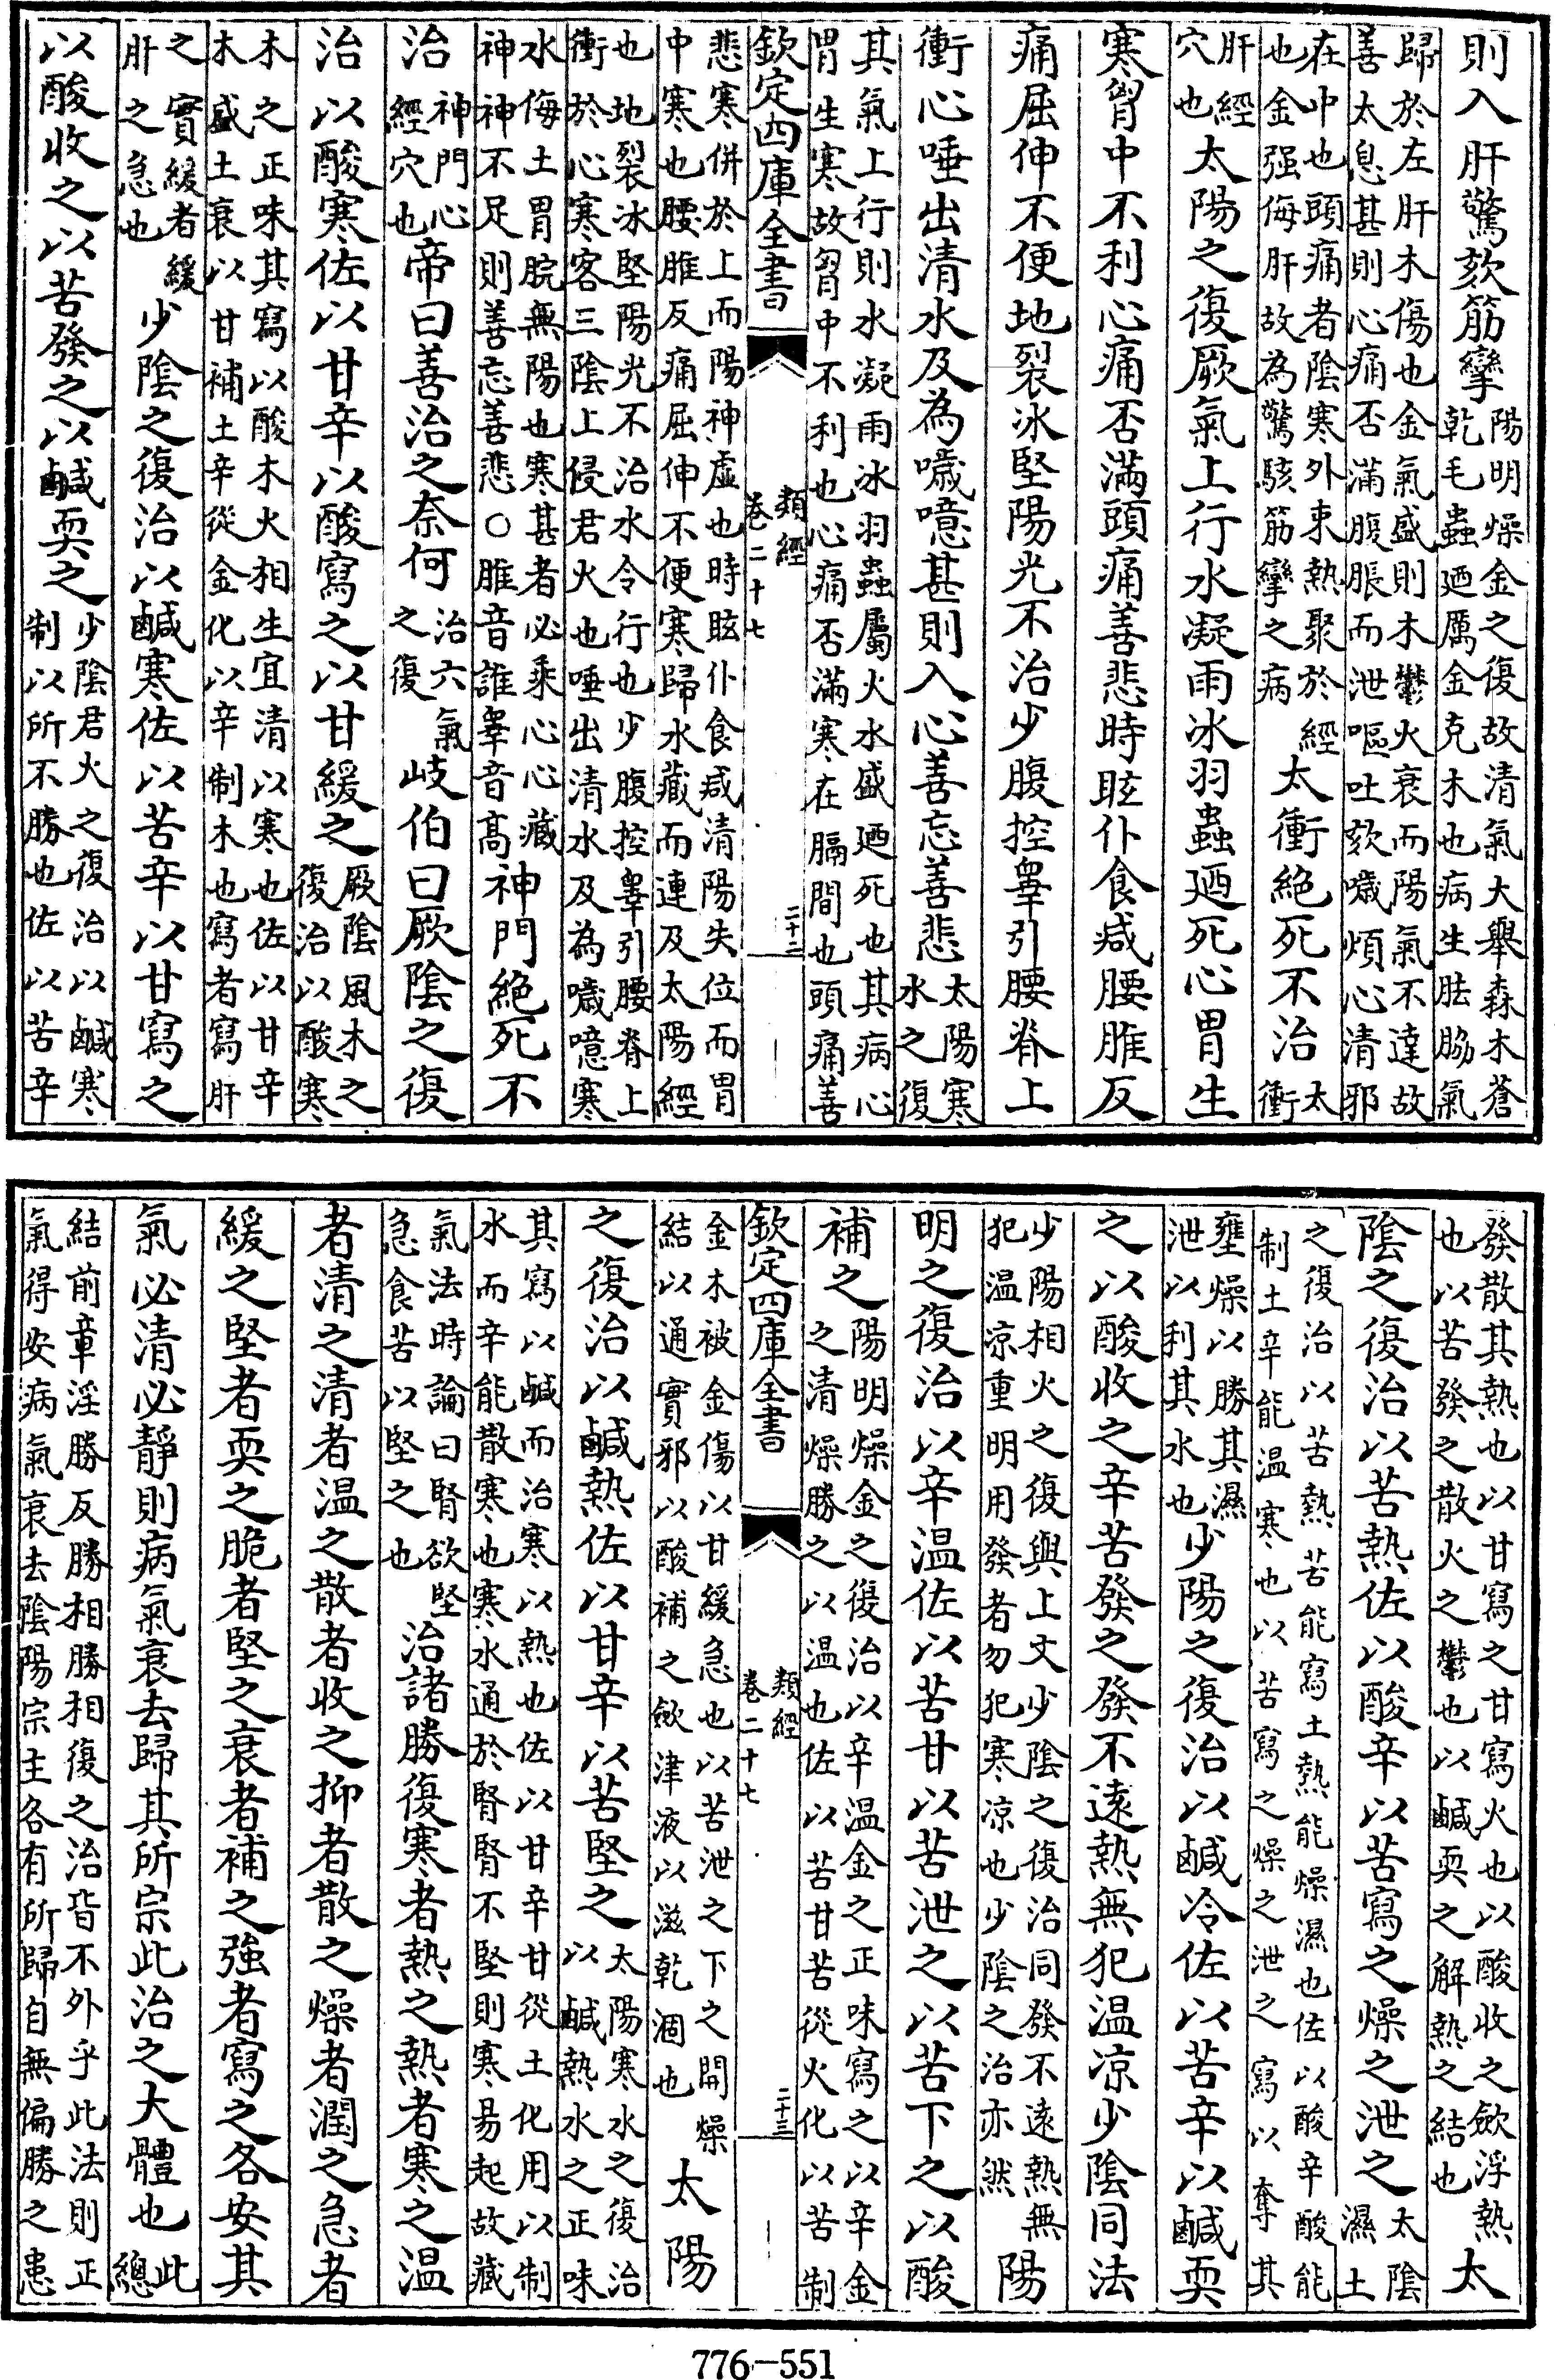 則入肝驚欬筋攣陽明燥金之復故清氣大舉森木蒼
乾毛蟲廼厲金克木也病生胠脇氣
歸於左肝木傷也金氣盛則木鬱火衰而陽氣不達故
善太息甚則心痛否滿腹脹而泄嘔吐欬噦煩心清邪
在中也頭痛者陰寒外束熱聚於經
也金强侮肝故為驚駭筋攣之病太衝絕死不治太
衝
肝經
穴也太陽之復厥氣上行水凝雨冰羽蟲廼死心胃生
寒胷中不利心痛否滿頭痛善悲時眩仆食减腰脽反
痛屈伸不便地裂冰堅陽光不治少腹控睾引腰脊上
衝心唾出清水及為噦噫甚則入心善忘善悲太陽寒
水之復
其氣上行則水凝雨冰羽蟲屬火水盛廼死也其病心
胃生寒故胷中不利也心痛否滿寒在膈間也頭痛善
欽定四庫全書
類經
卷二十七
二十二
悲寒併於上而陽神虛也時眩仆食咸清陽失位而胃
中寒也腰脽反痛屈伸不便寒歸水藏而連及太陽經
也地裂冰堅陽光不治水令行也少腹控睾引腰脊上
衝於心寒客三陰上侵君火也唾出清水及為噦噫寒
水侮土胃脘無陽也寒甚者必乘心心藏
神神不足則善忘善悲○脽音誰睾音高神門絕死不
治神門心
經穴也帝曰善治之奈何治六氣
之復岐伯曰厥陰之復
治以酸寒佐以甘辛以酸寫之以甘緩之厥陰風木之
復治以酸寒
木之正味其寫以酸木火相生宜清以寒也佐以甘辛
木盛土衰以甘補土辛從金化以辛制木也寫者寫肝
之實緩者緩
肝之急也少陰之復治以鹹寒佐以苦辛以甘寫之
以酸收之以苦發之以鹹耎之少陰君火之復治以鹹寒
制以所不勝也佐以苦辛
發散其熱也以甘寫之甘寫火也以酸收之斂浮熱
也以苦發之散火之鬱也以鹹耎之解熱之結也太
陰之復治以苦熱佐以酸辛以苦寫之燥之泄之太陰
濕土
之復治以苦熱苦能寫土熱能燥濕也佐以酸辛酸能
制土辛能温寒也以苦寫之燥之泄之寫以奪其
壅燥以勝其濕
泄以利其水也少陽之復治以鹹冷佐以苦辛以鹹耎
之以酸收之辛苦發之發不遠熱無犯温凉少陰同法
少陽相火之復與上文少陰之復治同發不遠熱無
犯温凉重明用發者勿犯寒凉也少陰之治亦然陽
明之復治以辛温佐以苦甘以苦泄之以苦下之以酸
補之陽明燥金之復治以辛温金之正味寫之以辛金
之清燥勝之以温也佐以苦甘苦從火化以苦制
欽定四庫全書
類經
卷二十七
二十三
金木被金傷以甘緩急也以苦泄之下之開燥
結以通實邪以酸補之斂津液以滋乾涸也太陽
之復治以鹹熱佐以甘辛以苦堅之太陽寒水之復治
以鹹熱水之正味
其寫以鹹而治寒以熱也佐以甘辛甘從土化用以制
水而辛能散寒也寒水通於腎腎不堅則寒易起故藏
氣法時論曰腎欲堅
急食苦以堅之也治諸勝復寒者熱之熱者寒之温
者清之清者温之散者收之抑者散之燥者潤之急者
緩之堅者耎之脆者堅之衰者補之強者寫之各安其
氣必清必靜則病氣衰去歸其所宗此治之大體也此
總
結前章淫勝反勝相勝相復之治皆不外乎此法則正
氣得安病氣衰去陰陽宗主各有所歸自無偏勝之患
776-551